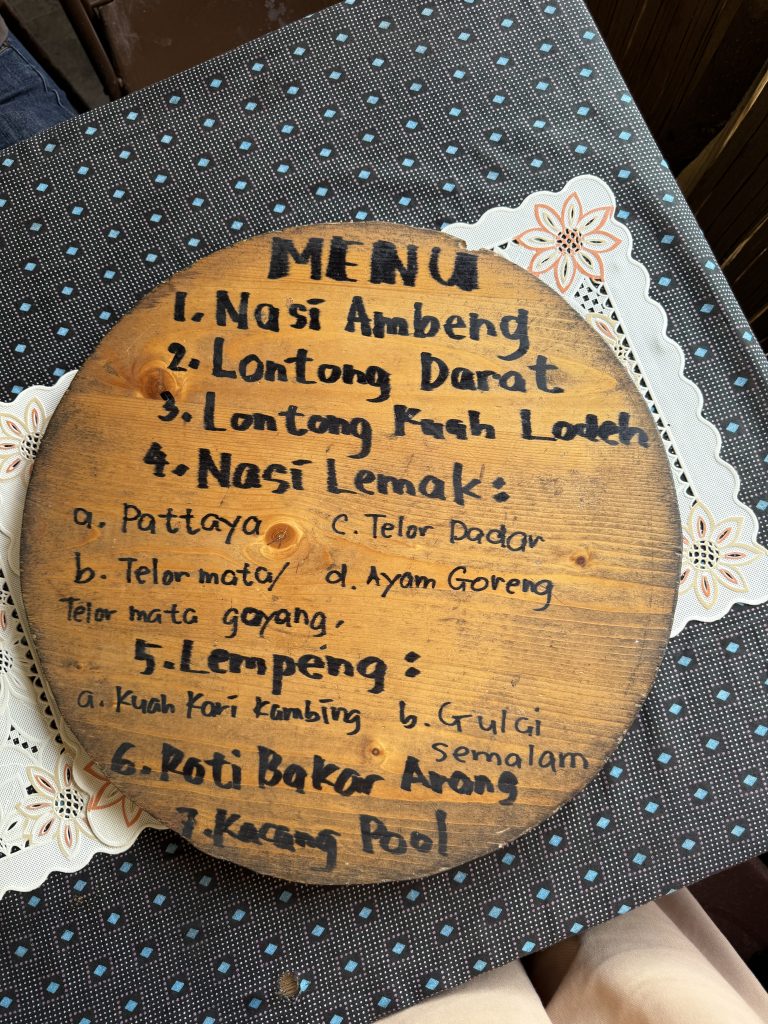 MENU
1. Nasi Ambeng
2. Lontong Darat
3. Lontong Kuah Lodeh
4. Nasi Lemak:
a. Pattaya
c. Telor Dadar
b. Telor mata/
d. Ayam Goreng
Telor mata goyang,
5. Lempeng:
a. Kuah Kari Kambing
b. Gulai
semalam
6. Roti Bakar Arang
7. Kacang Pool